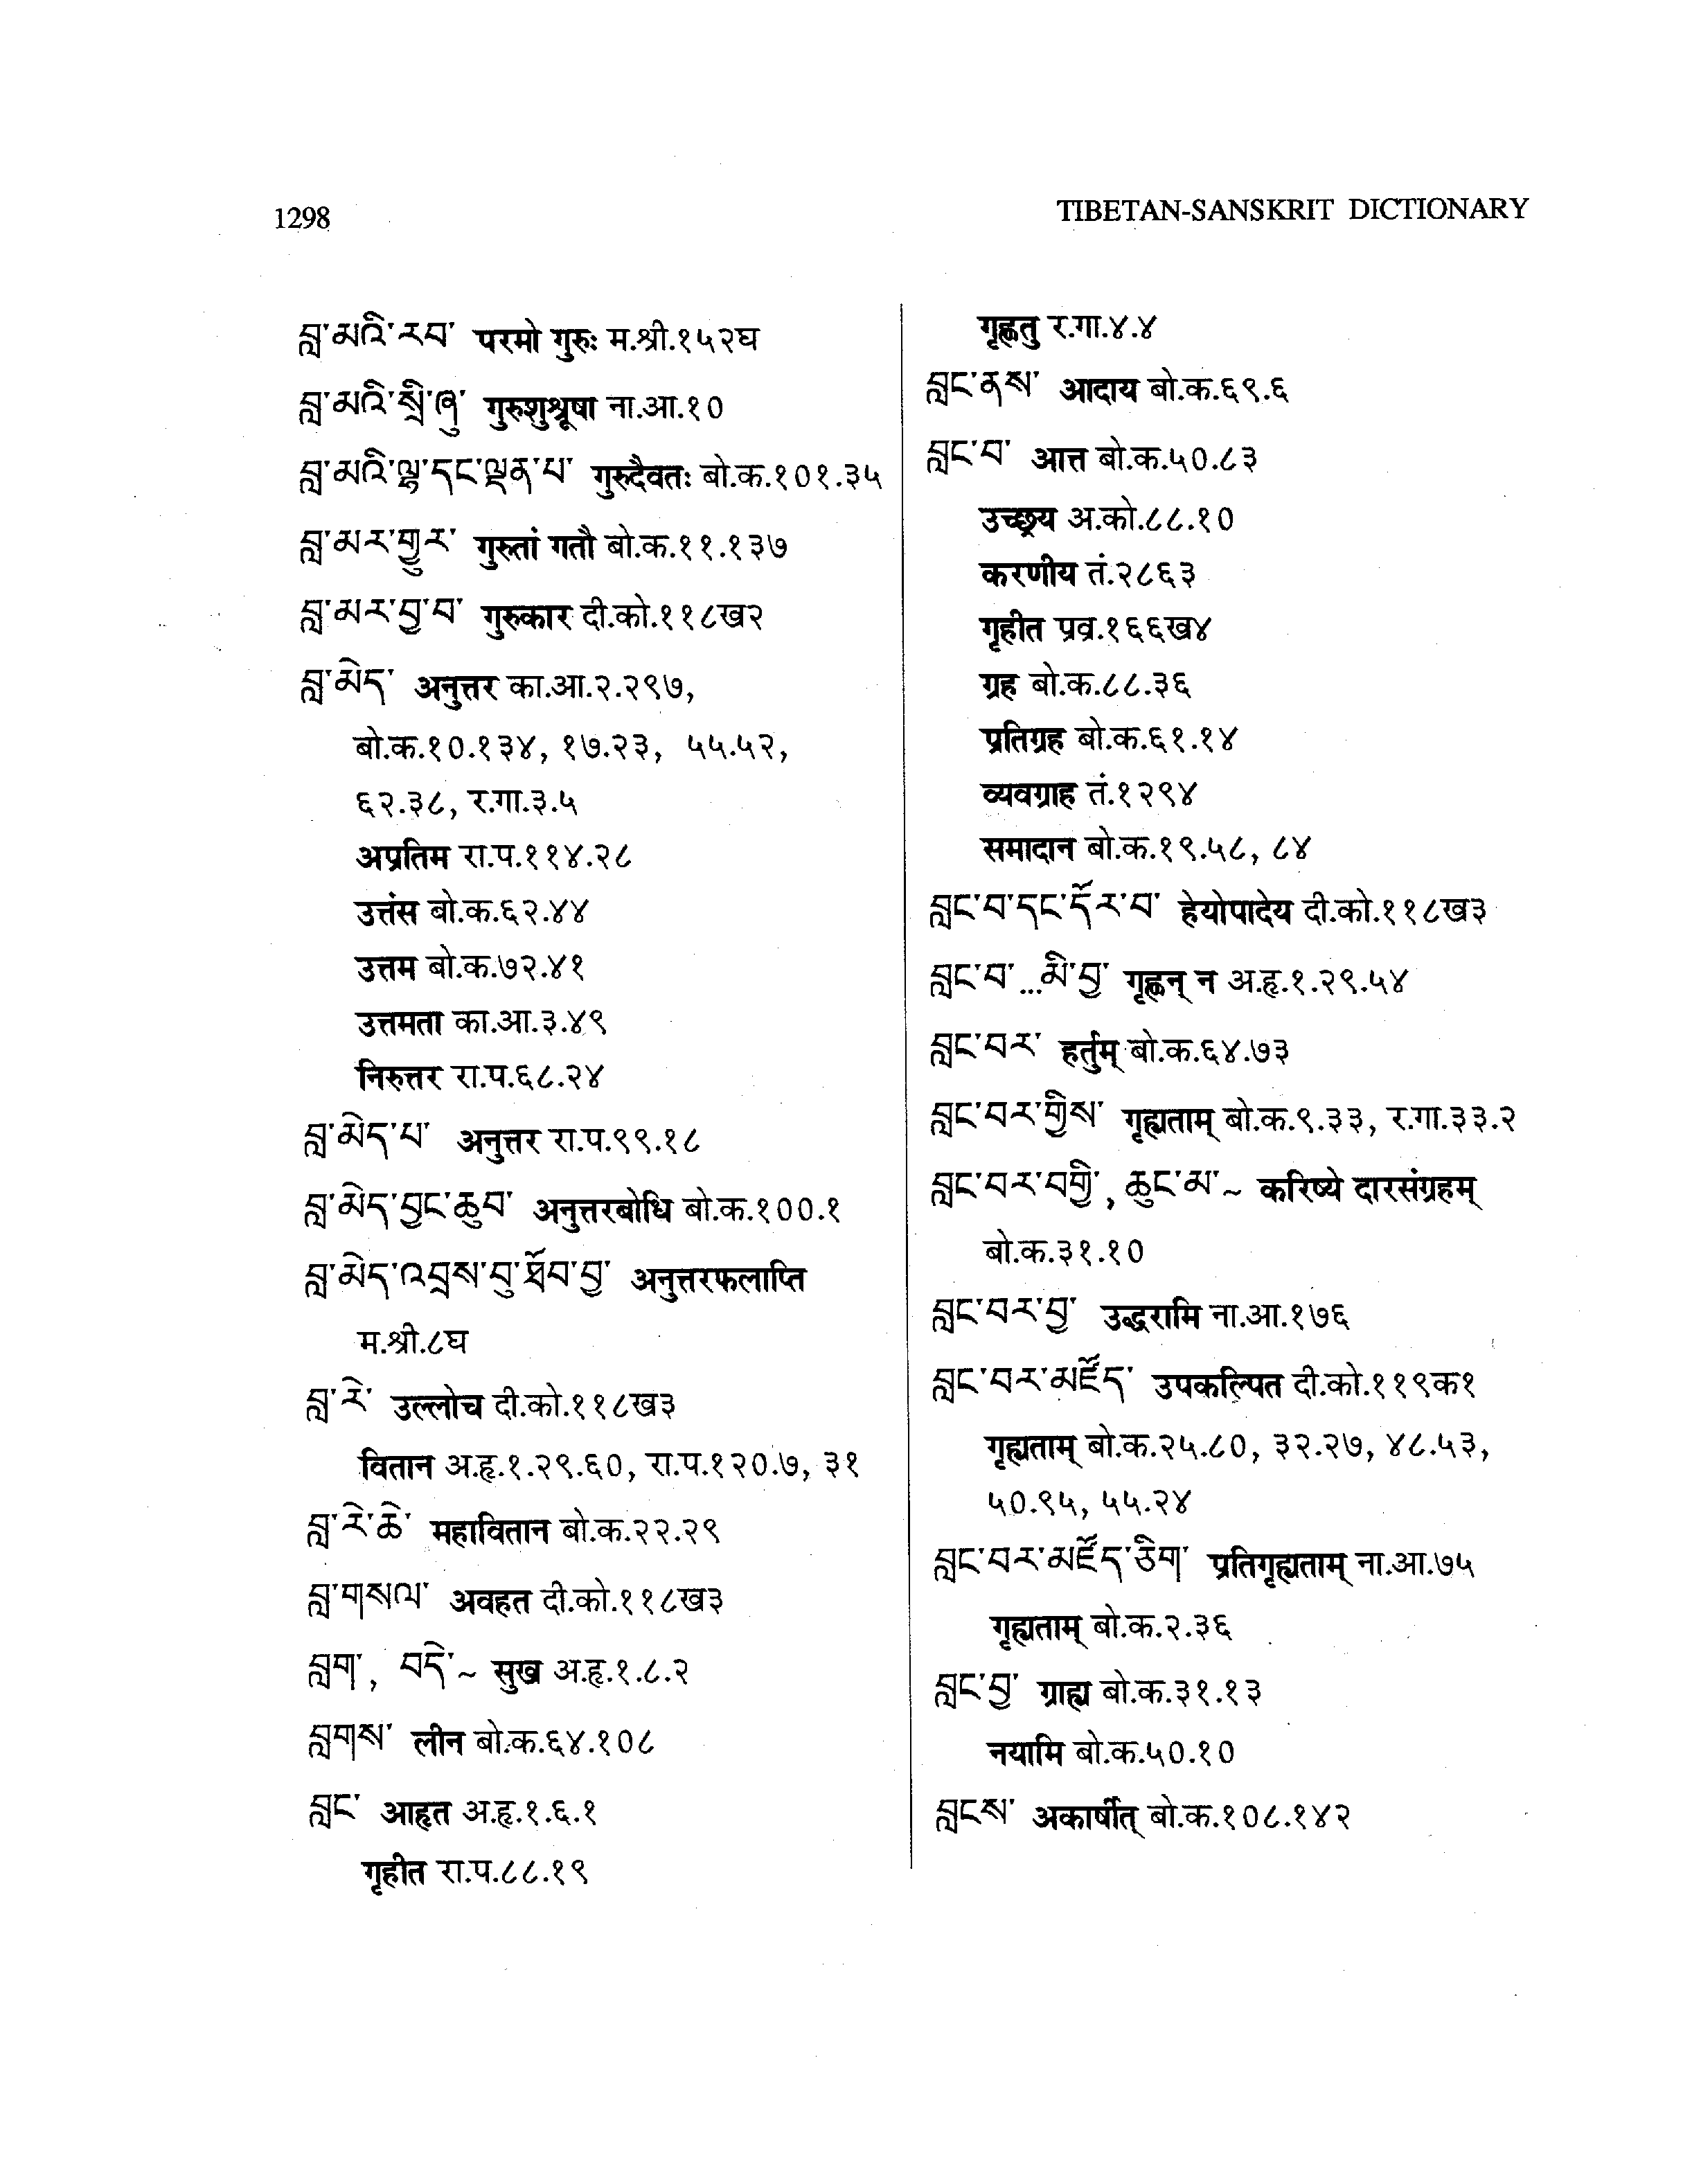 1298
TIBETAN-SANSKRIT DICTIONARY
བླ་མའི་རབ་ परमो गुरुः म.श्री.१५२घ
བླ་མའི་སྲི་ཞུ་ गुरुशुश्रूषा ना.आ.१०
བླ་མའི་ལྷ་དང་ལྡན་པ་ गुरुदैवतः बो.क.१०१.३५
བླ་མར་གྱུར་ गुरुतां गतौ बो.क.११.१३७
བླ་མར་བྱ་བ་ गुरुकार दी.को.११८ख२
བླ་མེད་ अनुत्तर का.आ.२.२९७,
बो.क.१०.१३४, १७.२३, ५५.५२,
६२.३८, र.गा.३.५
अप्रतिम रा.प.११४.२८
उत्तंस बो.क.६२.४४
उत्तम बो.क.७२.४१
उत्तमता का.आ.३.४९
निरुत्तर रा.प.६८.२४
བླ་མེད་པ་ अनुत्तर रा.प.९९.१८
བླ་མེད་བྱང་ཆུབ་ अनुत्तरबोधि बो.क.१००.१
བླ་མེད་འབྲས་བུ་ཐོབ་བྱ་ अनुत्तरफलाप्ति
म.श्री.८घ
བླ་རེ་ उल्लोच दी.को.११८ख३
वितान अ.हृ.१.२९.६०, रा.प.१२०.७, ३१
བླ་རེ་ཆེ་ महावितान बो.क.२२.२९
བླ་གསལ་ अवहत दी.को.११८ख३
བླག་, བདེ་~ सुख अ.हृ.१.८.२
བླགས་ लीन बो.क.६४.१०८
བླང་ आहृत अ.हृ.१.६.१
गृहीत रा.प.८८.१९
गृह्णतु र.गा.४.४
བླང་ནས་ आदाय बो.क.६९.६
བླང་བ་ आत्त बो.क.५०.८३
उच्छ्रय अ.को.८८.१०
करणीय तं.२८६३
गृहीत प्रव्र.१६६ख४
ग्रह बो.क.८८.३६
प्रतिग्रह बो.क.६१.१४
व्यवग्राह तं.१२९४
समादान बो.क.१९.५८, ८४
བླང་བ་དང་དོར་བ་ हेयोपादेय दी.को.११८ख३
བླང་བ་...མི་བྱ་ गृह्णन् न अ.हृ.१.२९.५४
བླང་བར་ हर्तुम् बो.क.६४.७३
བླང་བར་གྱིས་ गृह्यताम् बो.क.९.३३, र.गा.३३.२
བླང་བར་བགྱི་, ཆུང་མ་~ करिष्ये दारसंग्रहम्
बो.क.३१.१०
བླང་བར་བྱ་ उद्धरामि ना.आ.१७६
བླང་བར་མཛོད་ उपकल्पित दी.को.११९क१
गृह्यताम् बो.क.२५.८०, ३२.२७, ४८.५३,
५०.९५, ५५.२४
བླང་བར་མཛོད་ཅིག་ प्रतिगृह्यताम् ना.आ.७५
गृह्यताम् बो.क.२.३६
བླང་བྱ་ ग्राह्य बो.क.३१.१३
नयामि बो.क.५०.१०
བླངས་ अकार्षीत् बो.क.१०८.१४२